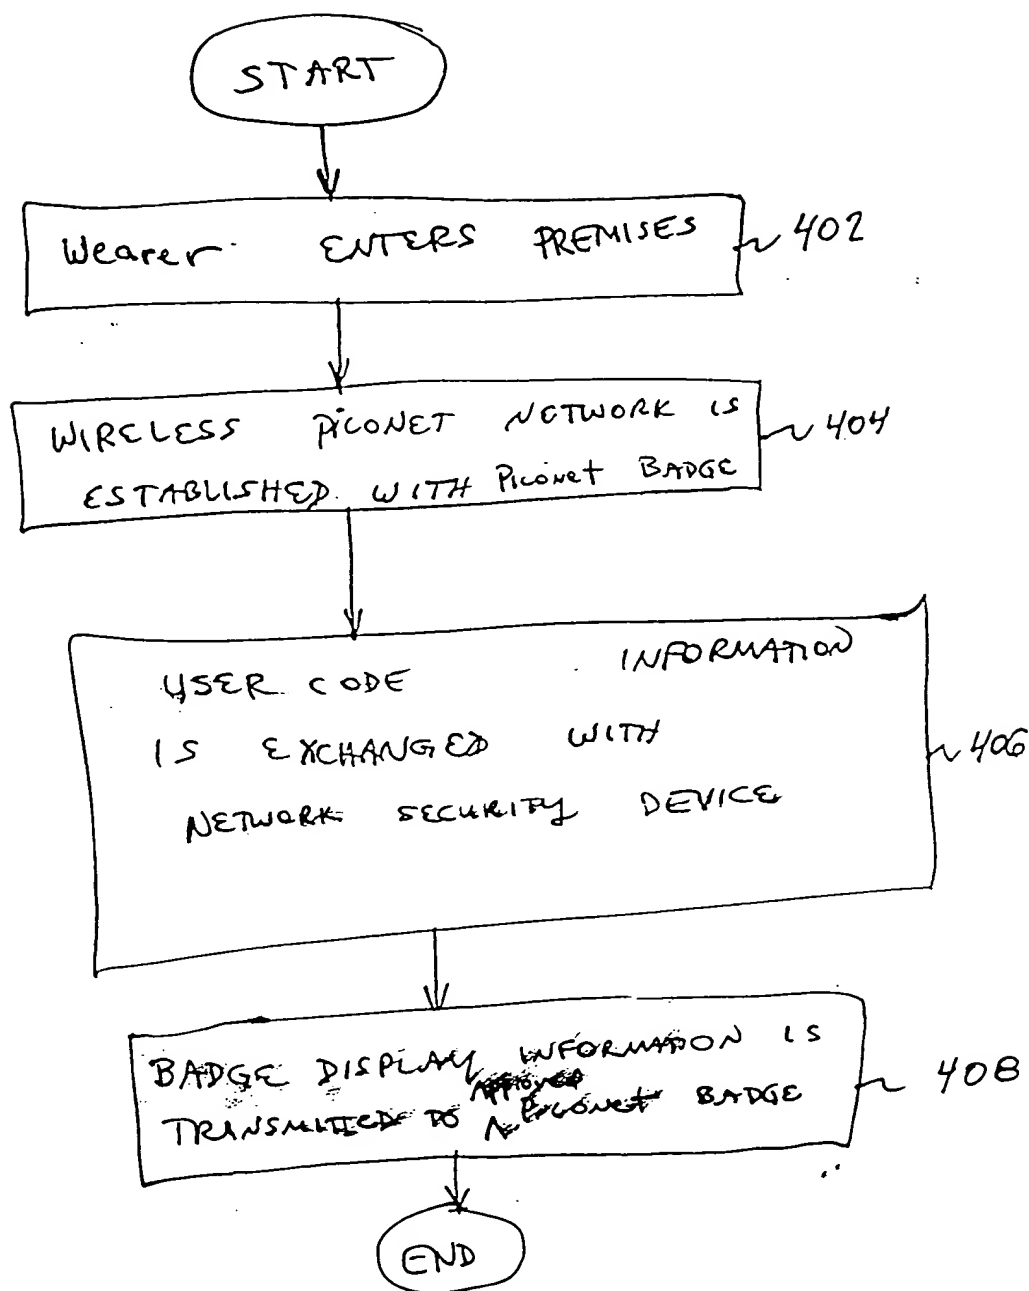 START
Wearer ENTERS PREMISES 402
WIRELESS PICONET NETWORK IS
ESTABLISHED WITH Piconet BADGE 404
USER CODE INFORMATION
IS EXCHANGED WITH
NETWORK SECURITY DEVICE 406
BADGE DISPLAY INFORMATION IS
APPROVED
TRANSMITTED TO Piconet BADGE 408
END